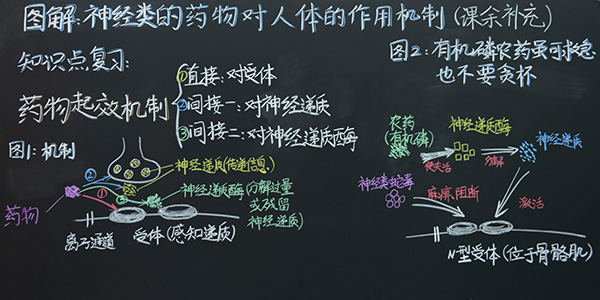 图解:神经类的药物对人体的作用机制(课余补充)
知识点复习:
药物起效机制
①直接:对受体
②间接一:对神经递质
③间接二:对神经递质酶
图1:机制
②
③
①
药物
神经递质(传递信息)
神经递质酶(分解过量
或残留
神经递质)
离子通道
受体(感知递质)
图2:有机磷农药虽可救急
也不要贪杯
农药
(有机磷)
神经递质酶
神经递质
使失活
分解
神经类蛇毒
麻痹,阻断
激活
N型受体(位于骨骼肌)